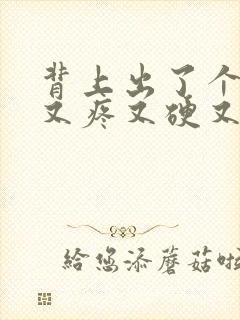 背上出了个
又疼又硬又
给您添蘑菇啦